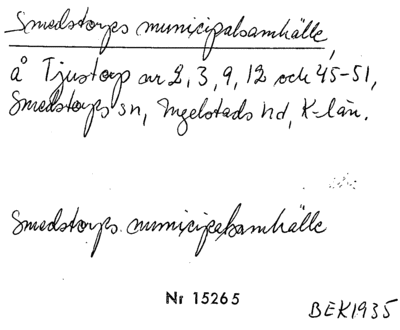 Smedstorps municipalsamhälle,
å Tjustorp nr 2, 3, 9, 12 och 45-51,
Smedstorps sn, Ingelstads hd, K-län.
Smedstorps municipalsamhälle
Nr 15265
BEK1935